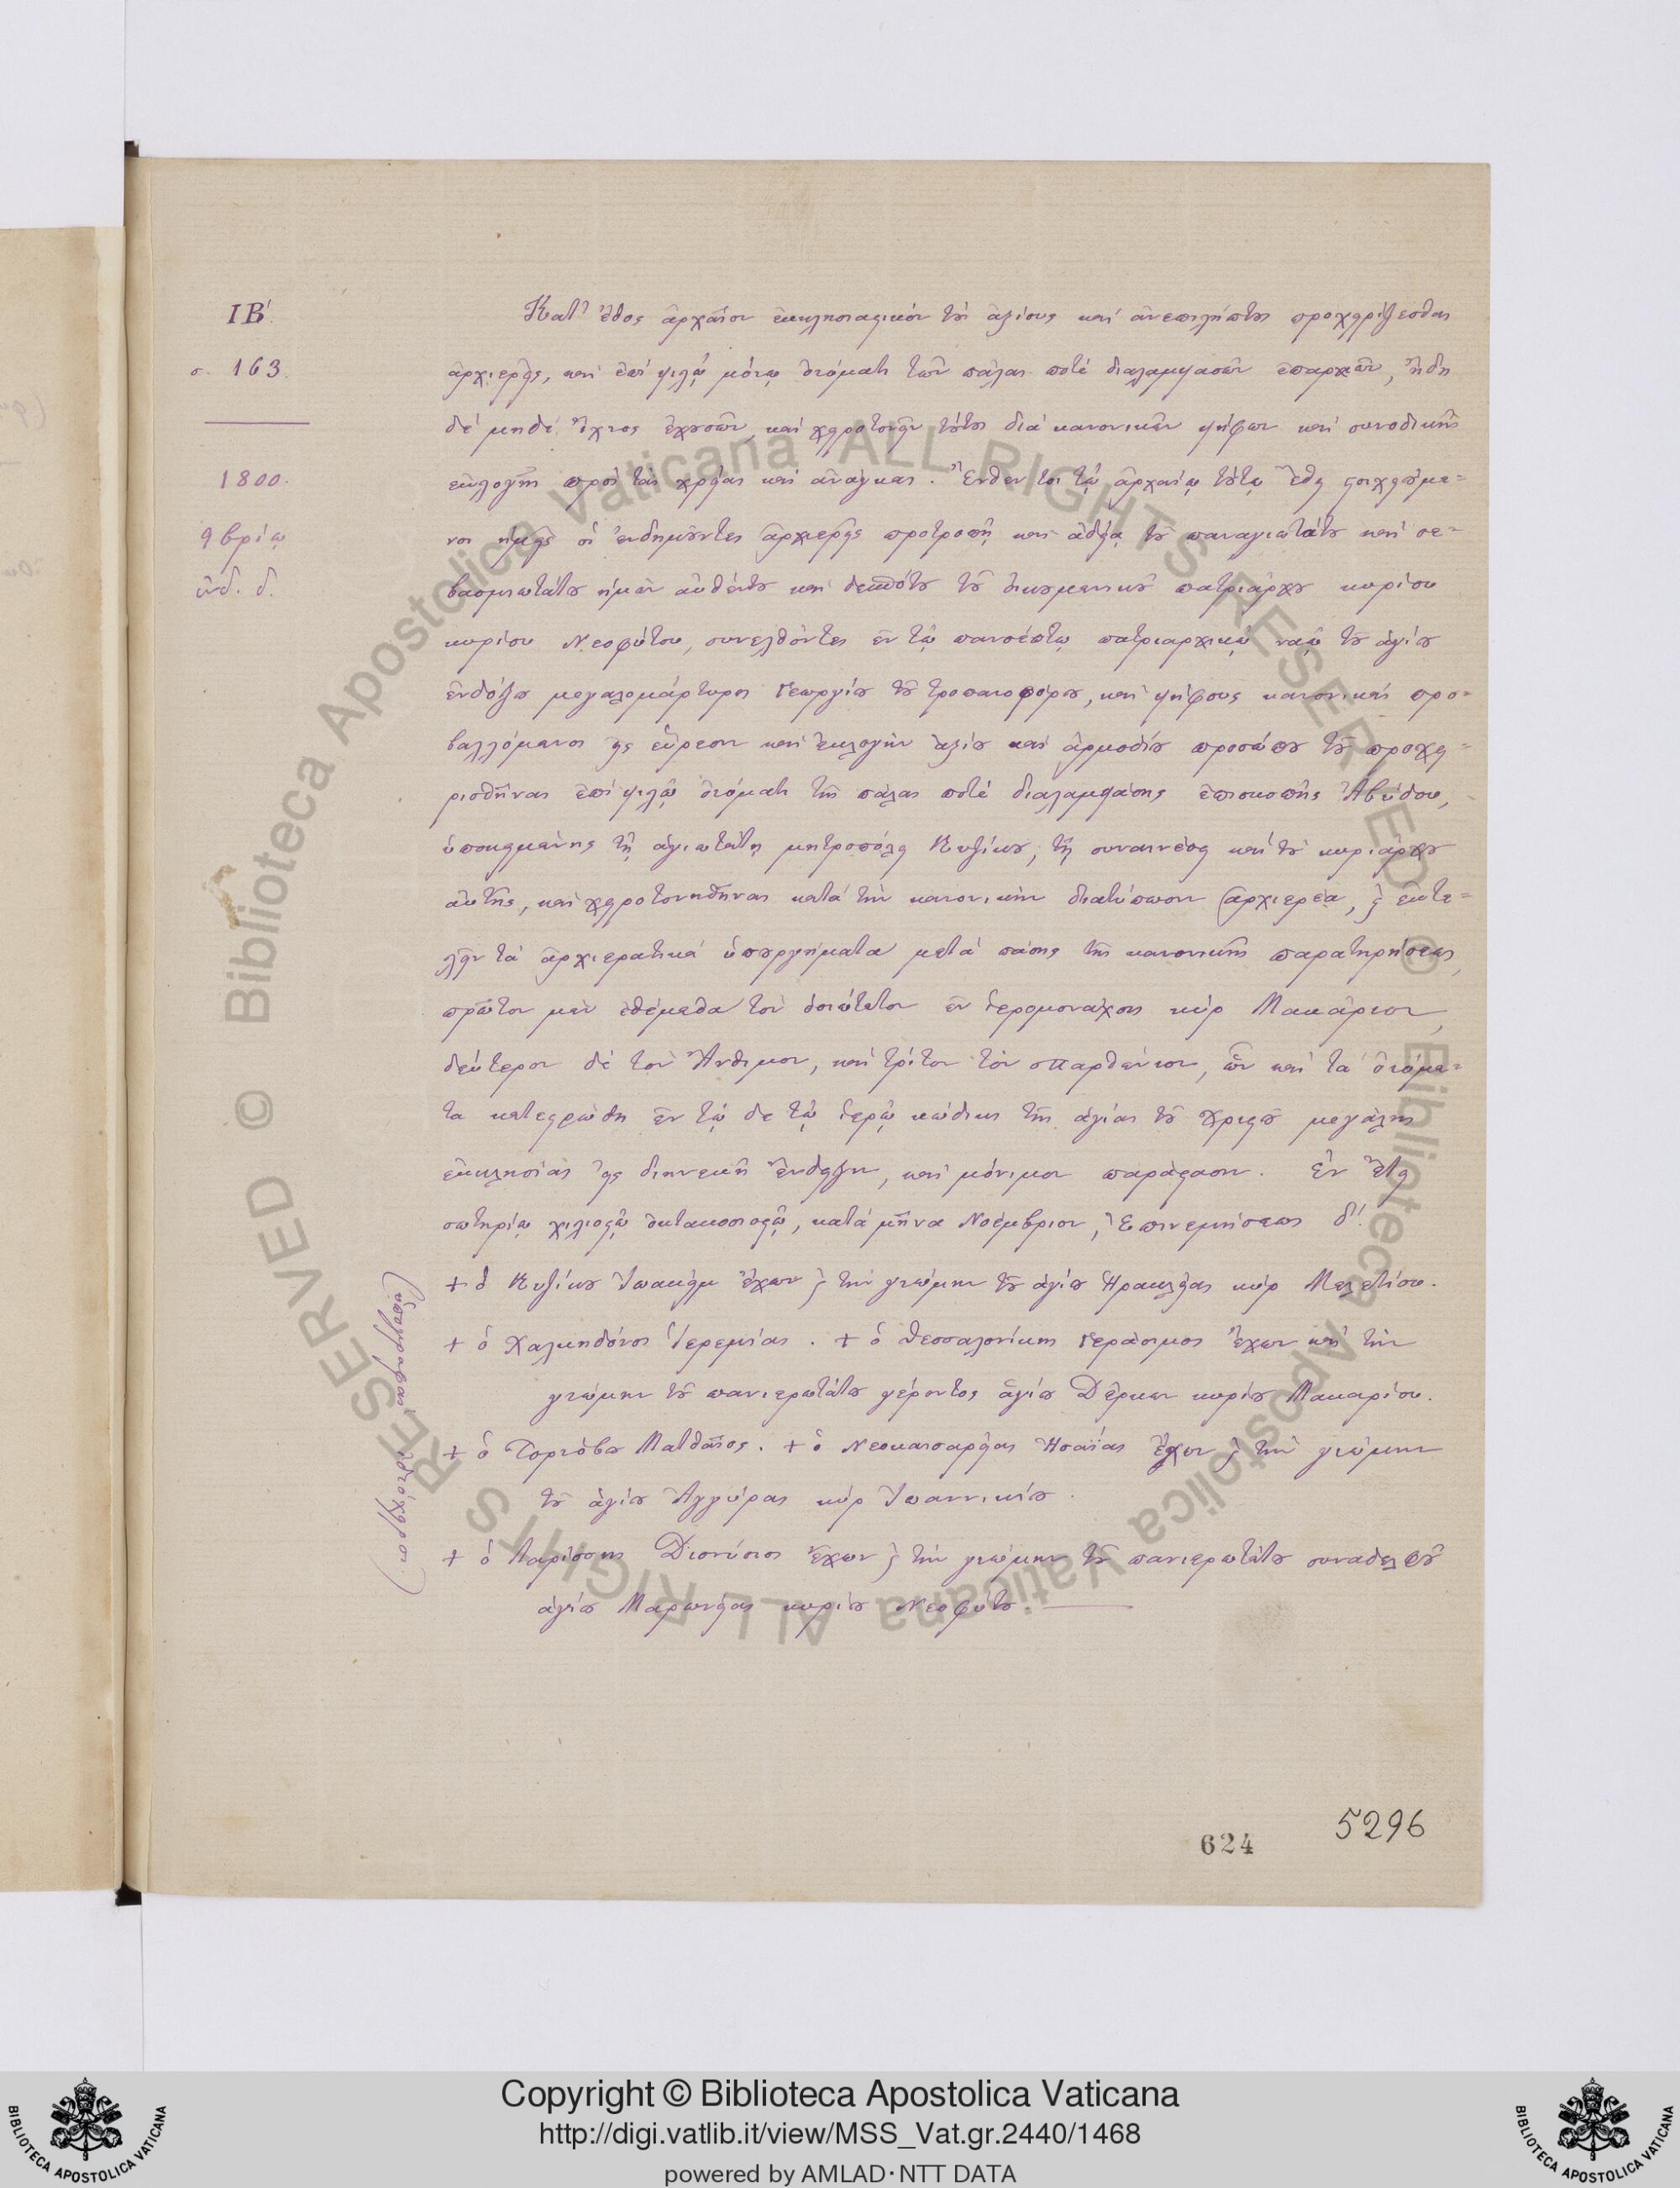 ΙΒ΄.
σ. 163.
1800.
9βρίῳ
ἰνδ. δ.
Κατ' ἔθος ἀρχαῖον ἐκκλησιαστικὸν τοὺς ἀξίους καὶ ἀνεπιλήπτους προχειρίζεσθαι
ἀρχιερεῖς, καὶ ἐπὶ ψιλῷ μόνῳ ὀνόματι τῶν πάλαι ποτὲ διαλαμψασῶν ἐπαρχιῶν, ἤδη
δὲ μηδὲ ἴχνος ἐχουσῶν, καὶ χειροτονεῖν τούτους διὰ κανονικῶν ψήφων καὶ συνοδικῆς
ἐκλογῆς πρὸς τὰς χρείας καὶ ἀνάγκας. Ἔνθεν τοι τῷ ἀρχαίῳ τούτῳ ἔθει στοιχησάμε=
νοι ἡμεῖς οἱ ἐνδημοῦντες ἀρχιερεῖς προτροπῇ καὶ ἀδείᾳ τοῦ παναγιωτάτου καὶ σε=
βασμιωτάτου ἡμῶν αὐθέντου καὶ δεσπότου τοῦ οἰκουμενικοῦ πατριάρχου κυρίου
κυρίου Νεοφύτου, συνελθόντες ἐν τῷ πανσέπτῳ πατριαρχικῷ ναῷ τοῦ ἁγίου
ἐνδόξου μεγαλομάρτυρος Γεωργίου τοῦ τροπαιοφόρου, καὶ ψήφους κανονικὰς προ=
βαλλόμενοι εἰς εὕρεσιν καὶ ἐκλογὴν ἀξίου καὶ ἁρμοδίου προσώπου τοῦ προχει=
ρισθῆναι ἐπὶ ψιλῷ ὀνόματι τῆς πάλαι ποτὲ διαλαμψάσης ἐπισκοπῆς Ἀβύδου,
ὑποκειμένης τῇ ἁγιωτάτῃ μητροπόλει Κυζίκου, τῇ συναινέσει καὶ τοῦ κυριάρχου
αὐτῆς, καὶ χειροτονηθῆναι κατὰ τὴν κανονικὴν διατύπωσιν ἀρχιερέα, ϗ ἐκτε=
λεῖν τὰ ἀρχιερατικὰ ὑπουργήματα μετὰ πάσης τῆς κανονικῆς παρατηρήσεως,
πρῶτον μὲν ἐθέμεθα τὸν ὁσιώτατον ἐν ἱερομονάχοις κὺρ Μακάριον,
δεύτερον δὲ τὸν Ἄνθιμον, καὶ τρίτον τὸν Παρθένιον, ὧν καὶ τὰ ὀνόμα=
τα κατεστρώθη ἐν τῷ δε τῷ ἱερῷ κώδικι τῆς ἁγίας τοῦ Χριστοῦ μεγάλης
ἐκκλησίας εἰς διηνεκῆ ἔνδειξιν, καὶ μόνιμον παράστασιν. Ἐν ἔτει
σωτηρίῳ χιλιοστῷ ὀκτακοσιοστῷ, κατὰ μῆνα Νοέμβριον, Ἐπινεμήσεως δ΄.
+ ὁ Κυζίκου Ἰωακεὶμ ἔχων ϗ τὴν γνώμην τοῦ ἁγίου Ἡρακλείας κὺρ Μελετίου.
+ ὁ Χαλκηδόνος Ἱερεμίας. + ὁ Θεσσαλονίκης Γεράσιμος ἔχων καὶ τὴν
γνώμην τοῦ πανιερωτάτου γέροντος ἁγίου Δέρκων κυρίου Μακαρίου.
+ ὁ Τορνόβου Ματθαῖος. + ὁ Νεοκαισαρείας Ἡσαΐας ἔχων ϗ τὴν γνώμην
τοῦ ἁγίου Ἀγκύρας κὺρ Ἰωαννικίου.
+ ὁ Λαρίσσης Διονύσιος ἔχων ϗ τὴν γνώμην τοῦ πανιερωτάτου συναδελφοῦ
ἁγίου Μαρωνείας κυρίου Νεοφύτου.
624
5296
© Biblioteca Apostolica Vaticana ALL RIGHTS RESERVED © Biblioteca Apostolica Vaticana ALL RIGHTS RESERVED
Copyright © Biblioteca Apostolica Vaticana
http://digi.vatlib.it/view/MSS_Vat.gr.2440/1468
powered by AMLAD·NTT DATA
BIBLIOTECA APOSTOLICA VATICANA
BIBLIOTECA APOSTOLICA VATICANA